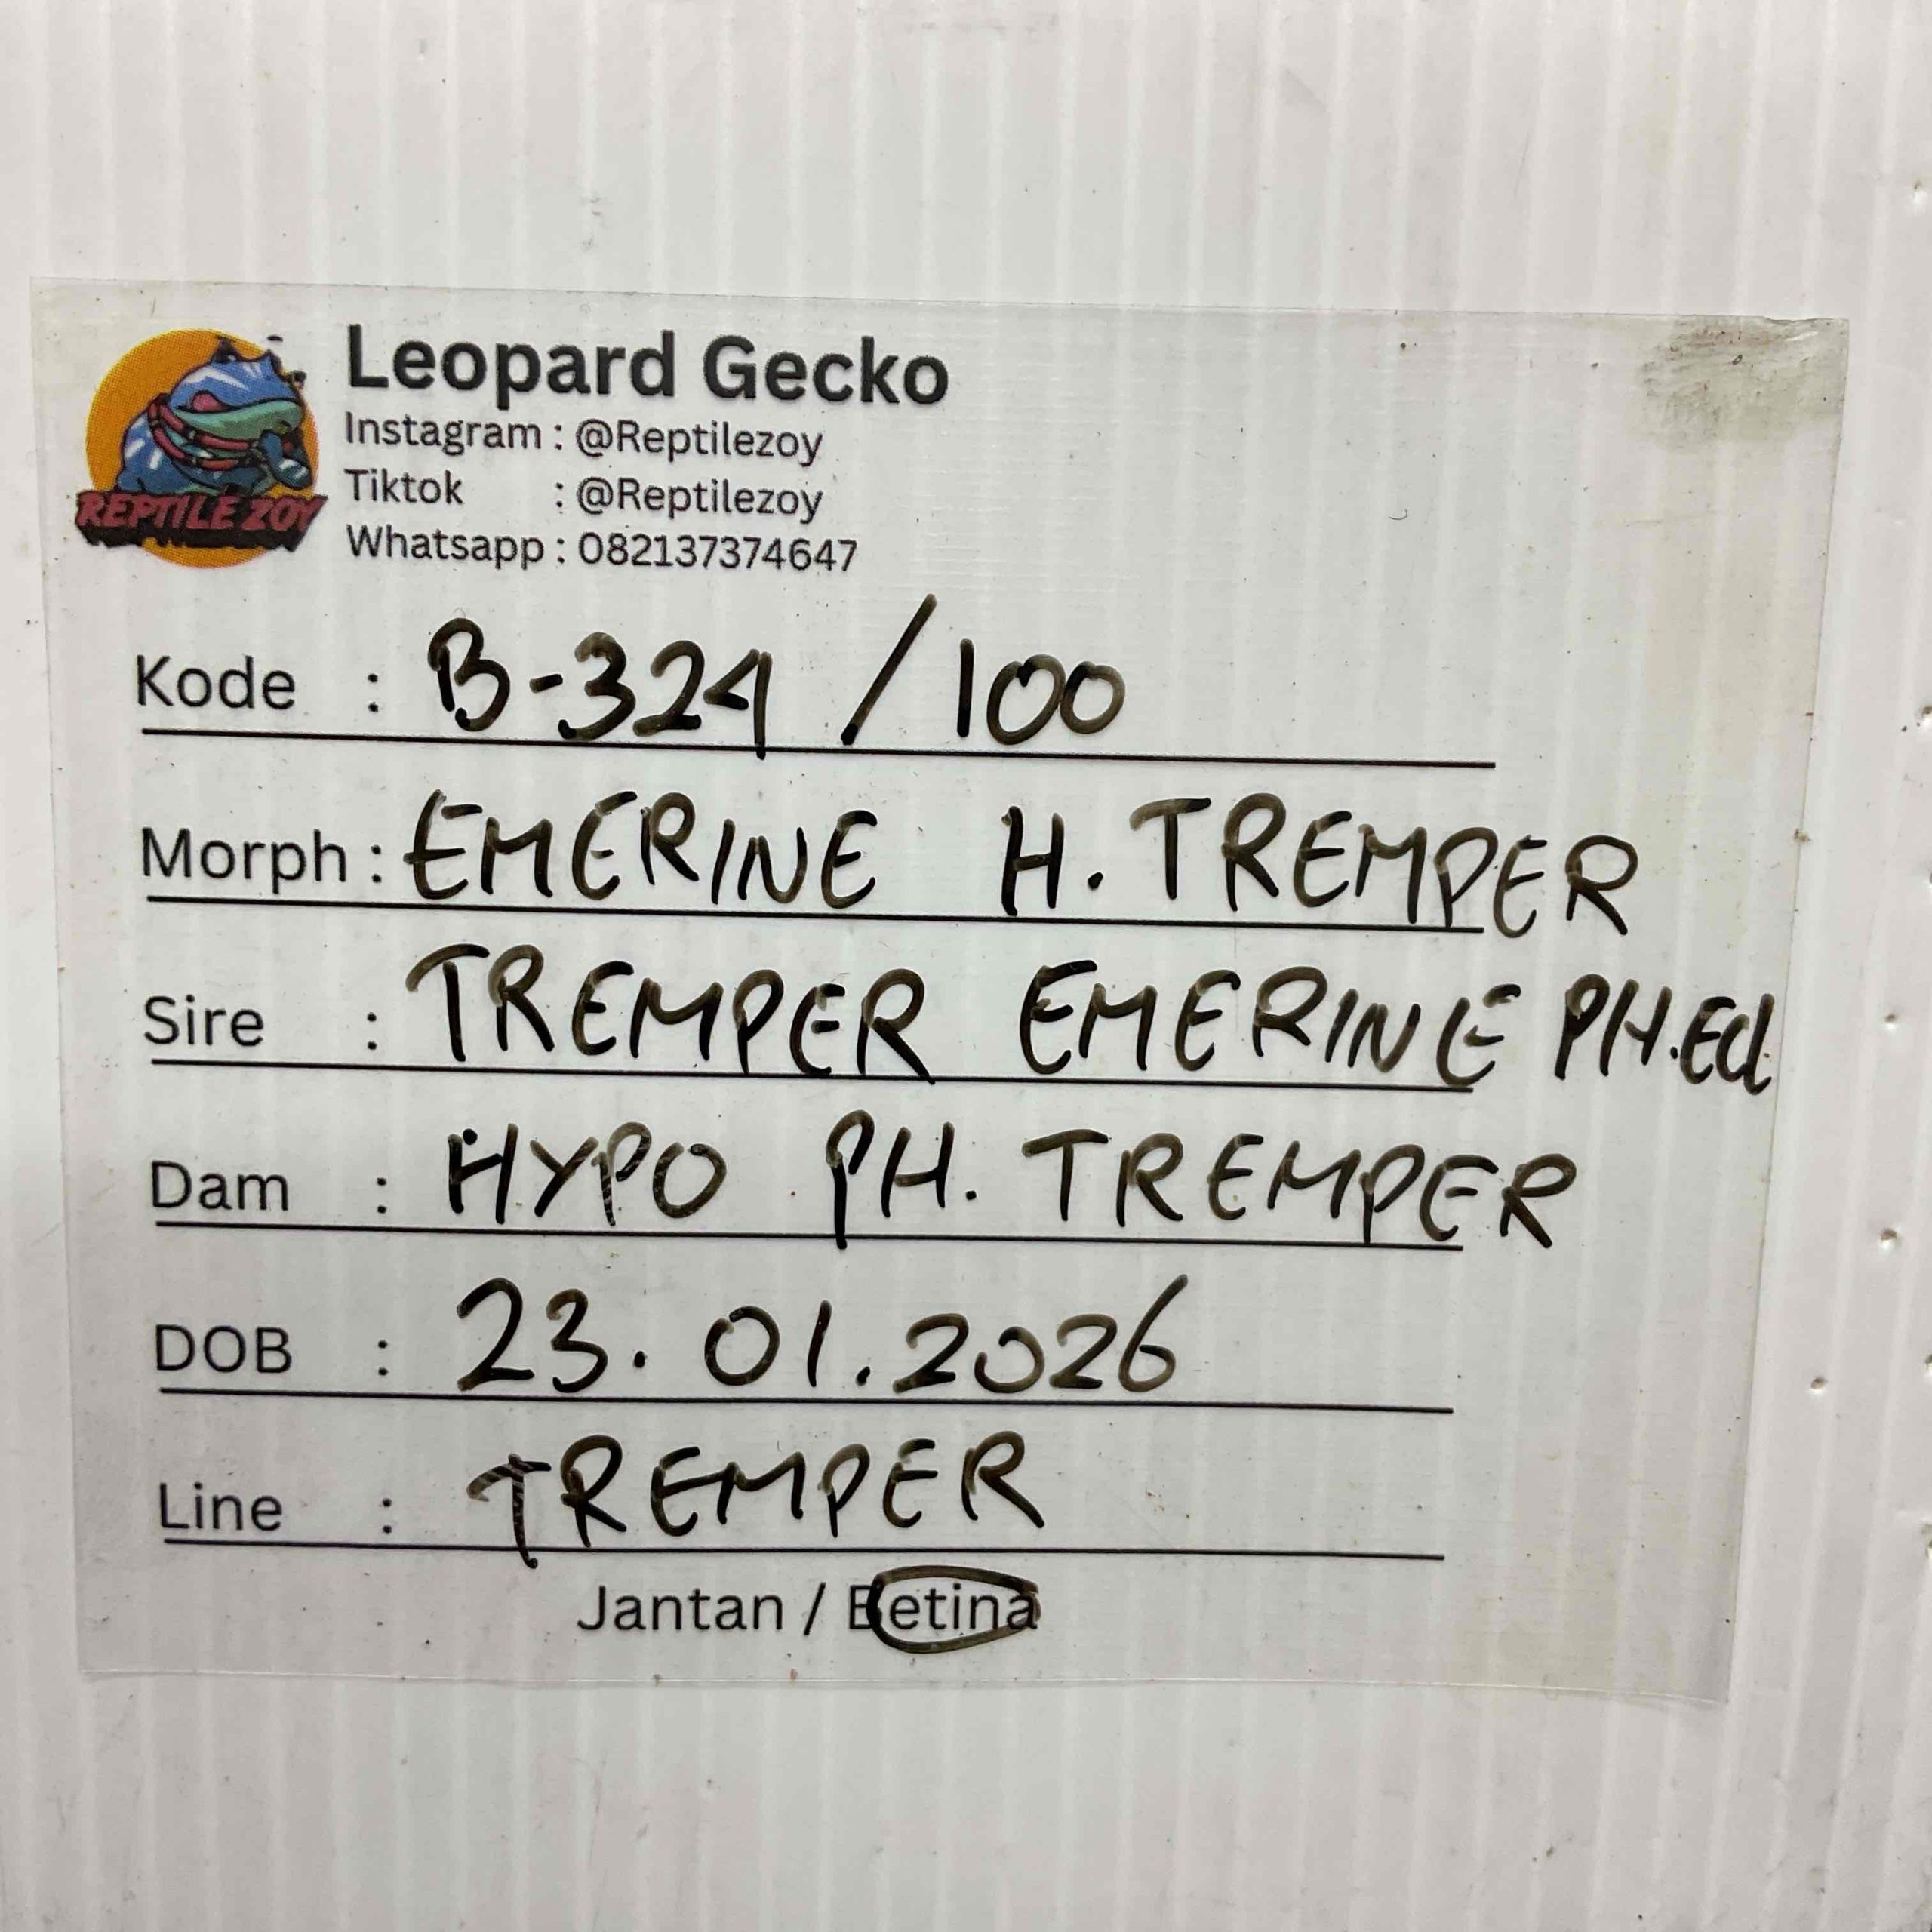 REPTILE ZOY
Leopard Gecko
Instagram : @Reptilezoy
Tiktok : @Reptilezoy
Whatsapp : 082137374647
Kode : B-324 / 100
Morph : EMERINE H. TREMPER
Sire : TREMPER EMERINE PH.Ecl
Dam : HYPO PH. TREMPER
DOB : 23.01.2026
Line : TREMPER
Jantan / Betina